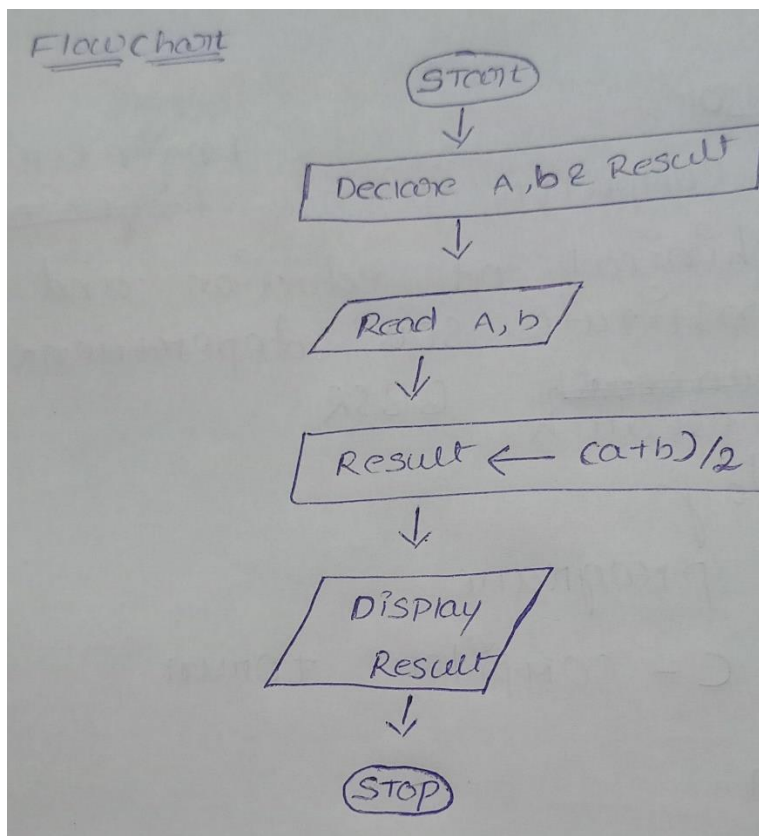 Flow Chart
START
Declare A, b & Result
Read A, b
Result ← (a+b)/2
Display
Result
STOP